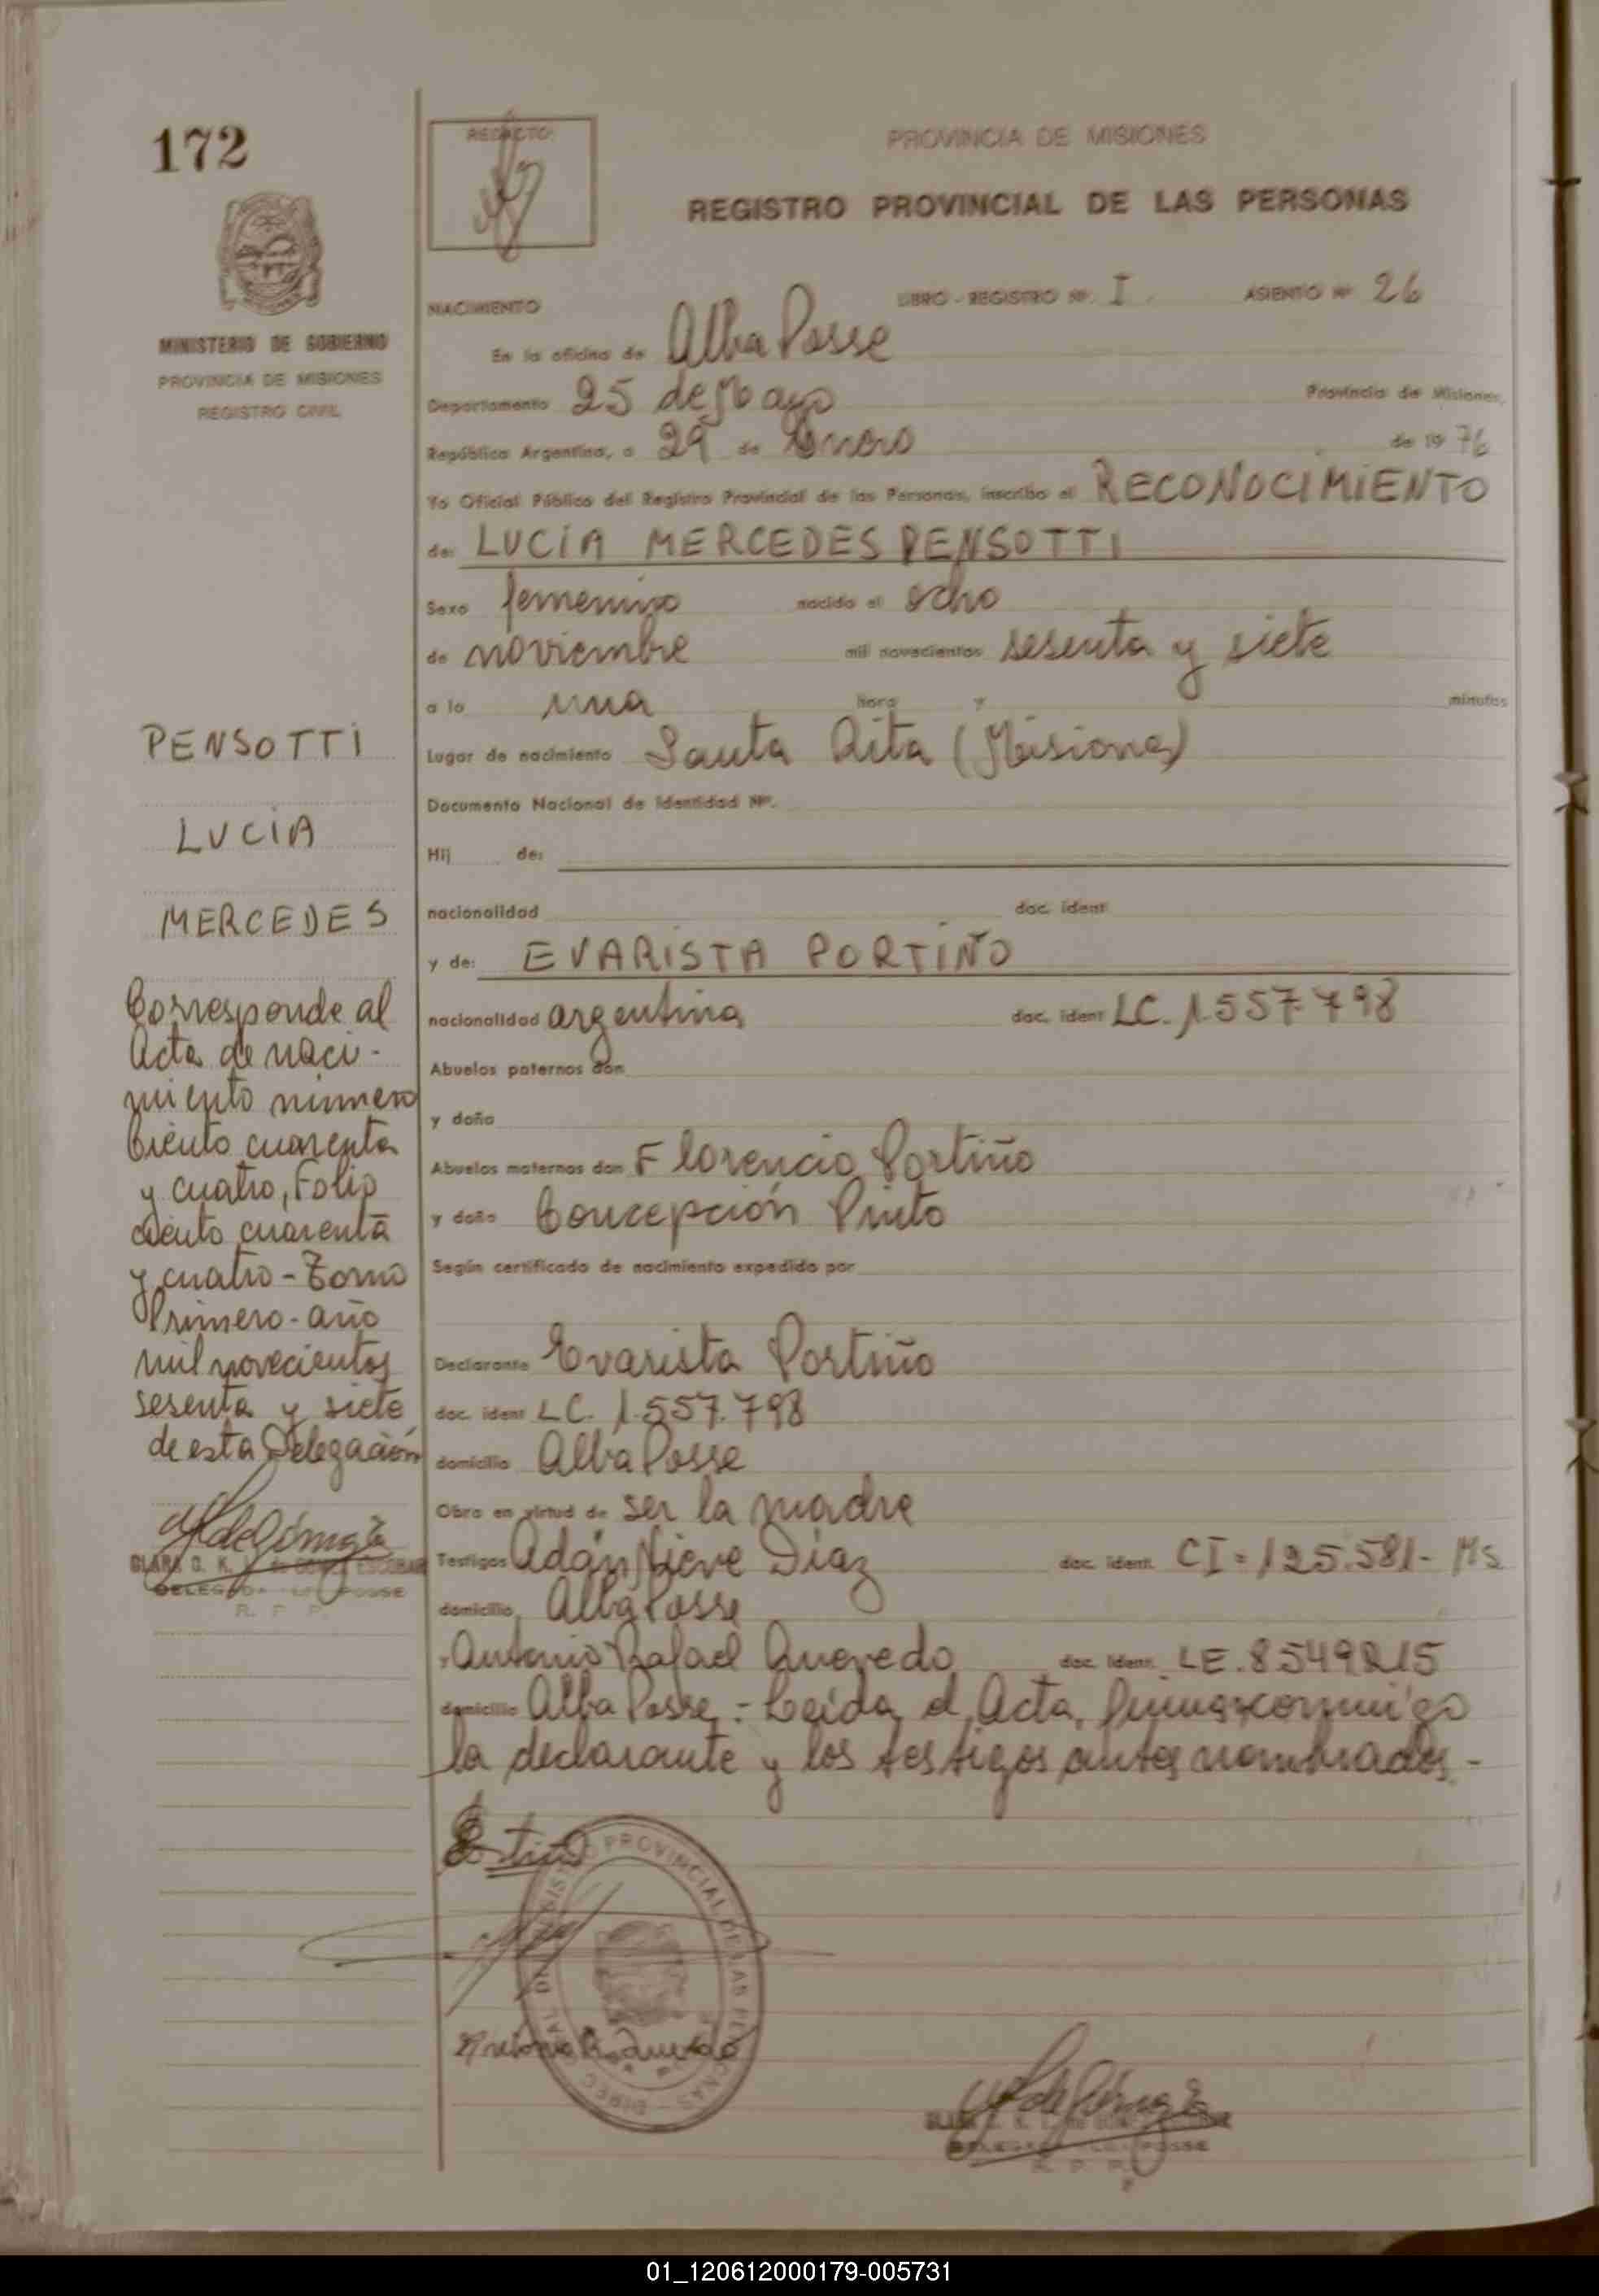 172
REDACTO:
PROVINCIA DE MISIONES
REGISTRO PROVINCIAL DE LAS PERSONAS
MINISTERIO DE GOBIERNO
PROVINCIA DE MISIONES
REGISTRO CIVIL
NACIMIENTO LIBRO - REGISTRO Nº. I ASIENTO Nº 26
En la oficina de Alba Posse
Departamento 25 de Mayo Provincia de Misiones,
República Argentina, a 29 de Enero de 1976
Yo Oficial Público del Registro Provincial de las Personas, inscribo el RECONOCIMIENTO
de: LUCIA MERCEDES PENSOTTI
Sexo femenino nacido el ocho
de noviembre mil novecientos sesenta y siete
a la una hora y minutos
Lugar de nacimiento Santa Rita (Misiones)
Documento Nacional de Identidad Nº.
Hij de:
nacionalidad doc. ident
y de: EVARISTA PORTIÑO
nacionalidad argentina doc. ident LC. 1.557.798
Abuelos paternos don
y doña
Abuelos maternos don Florencio Portiño
y doña Concepción Pinto
Según certificado de nacimiento expedido por
Declarante Evarista Portiño
doc. ident LC. 1.557.798
domicilio Alba Posse
Obra en virtud de ser la madre
Testigos Adán Nieve Diaz doc. ident. CI = 125.581 - Ms
domicilio Alba Posse
y Antonio Rafael Quevedo doc. ident. LE. 8549215
domicilio Alba Posse - Leída el Acta, conmigo
la declarante y los testigos antes nombrados -
PENSOTTI
LUCIA
MERCEDES
Corresponde al
Acta de naci-
miento número
Ciento cuarenta
y cuatro, Folio
ciento cuarenta
y cuatro - Tomo
Primero - año
mil novecientos
sesenta y siete
de esta Delegación
PROVINCIAL DE LAS PERSONAS
R. P. P.
R. P. P.
01_120612000179-005731